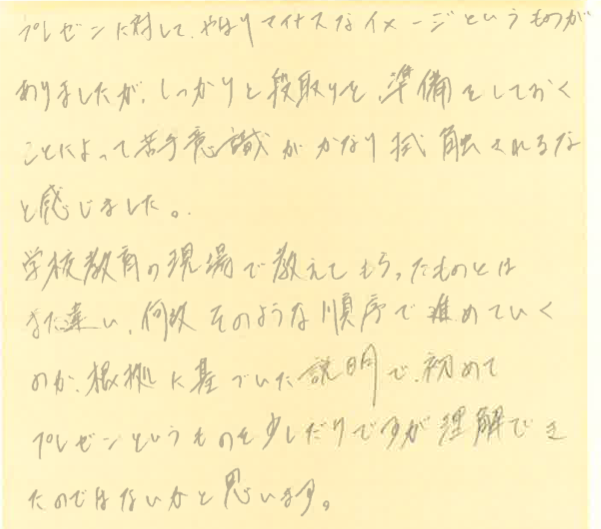 プレゼンに対して、やはりマイナスなイメージというものが
ありましたが、しっかりと段取りを、準備をしておく
ことによって苦手意識がかなり拭触されるな
と感じました。
学校教育の現場で教えてもらったものとは
また違い、何故そのような順序で進めていく
のか、根拠に基づいた説明で、初めて
プレゼンというものを少しだけですが理解でき
たのではないかと思います。